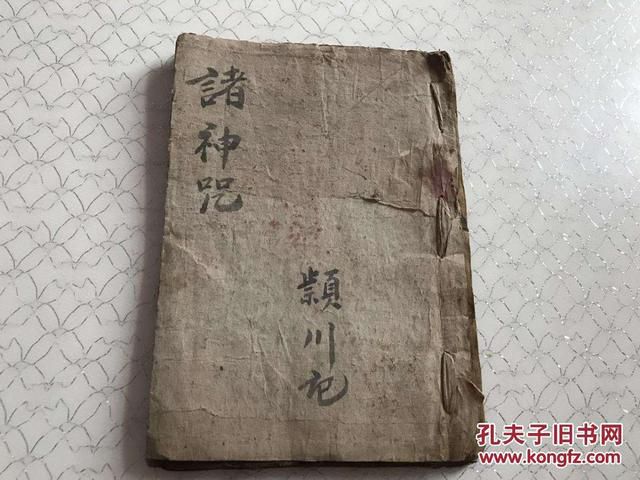 諸神咒
頴川記
孔夫子旧书网
www.kongfz.com